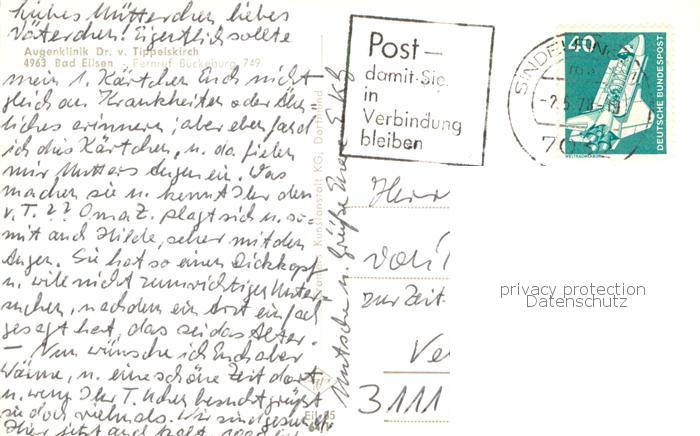 liebes Mütterchen, liebes
Väterchen! Eigentlich sollte
Augenklinik Dr. v. Tippelskirch
4963 Bad Eilsen - Fernruf Bückeburg 749
mein 1. Kärtchen Euch nicht
gleich an Krankheiten oder Ähn-
liches erinnern; aber eben fand
ich dies Kärtchen, u. da fielen
mir Mutters Augen ein. Was
machen sie u. kennt Ihr den
v. T.?? Oma Z. plagt sich u. so-
mit auch Hilde, sehr mit den
Augen. Sie hat so einen Dickkopf
u. will nicht zum richtigen Unter-
suchen, nachdem ein Arzt einfach
gesagt hat, das sei das Alter.
- Nun wünsche ich Euch aber
Wärme, u. eine schöne Zeit dort
u. wenn Ihr T. Uchen besucht grüßt
sie doch vielmals. Wir sind gesund.
Hier ist und kalt
Kunstanstalt KG, Dortmund
Eil 85
Post -
damit Sie
in
Verbindung
bleiben
SINDELFIN
-2.5.78-
703
40
DEUTSCHE BUNDESPOST
WELTRAUMLABOR
Herr
von
zur Zeit
Ve
3111
privacy protection
Datenschutz